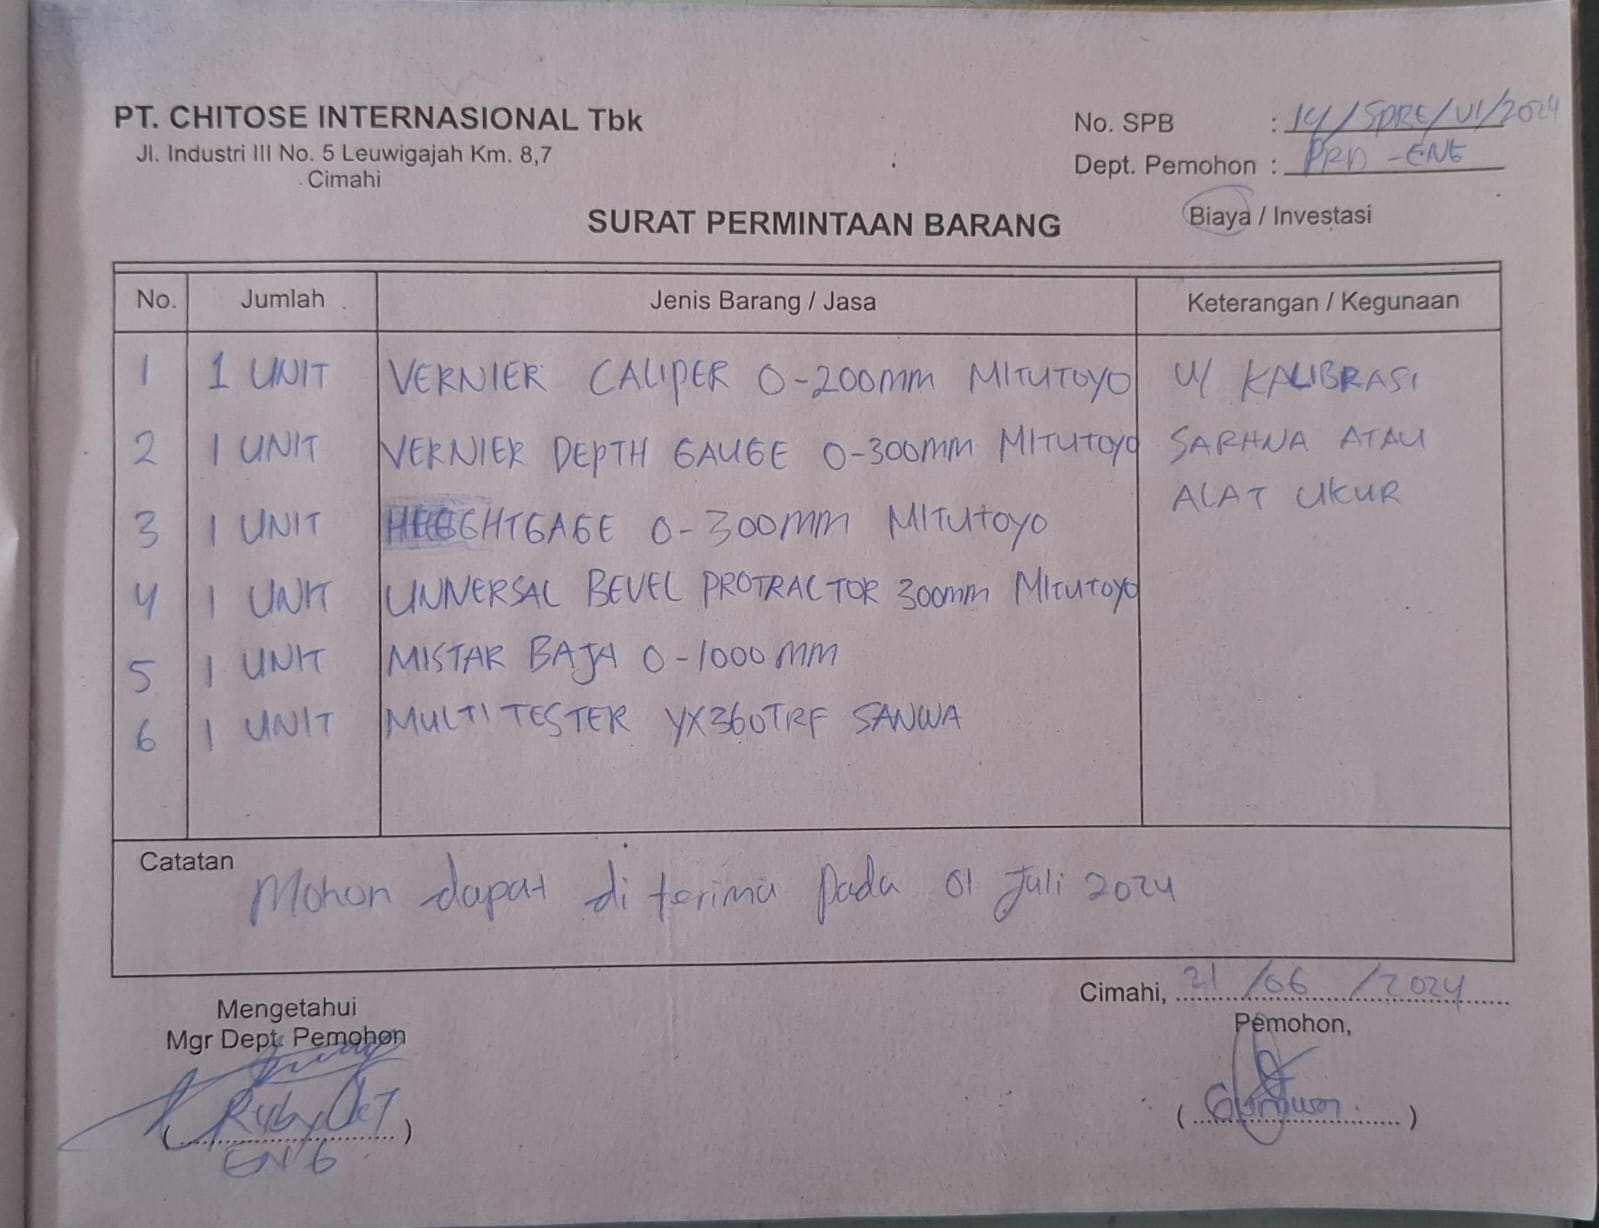 PT. CHITOSE INTERNASIONAL Tbk
Jl. Industri III No. 5 Leuwigajah Km. 8,7
Cimahi
No. SPB : 14/SPRE/VI/2024
Dept. Pemohon : PRD-ENG
SURAT PERMINTAAN BARANG
Biaya / Investasi
No. Jumlah Jenis Barang / Jasa Keterangan / Kegunaan
1 1 UNIT VERNIER CALIPER 0-200mm MITUTOYO U/ KALIBRASI
2 1 UNIT VERNIER DEPTH GAUGE 0-300mm MITUTOYO SARANA ATAU
ALAT UKUR
3 1 UNIT HEIGHTGAGE 0-300mm MITUTOYO
4 1 UNIT UNIVERSAL BEVEL PROTRACTOR 300mm MITUTOYO
5 1 UNIT MISTAR BAJA 0-1000mm
6 1 UNIT MULTITESTER YX360TRF SANWA
Catatan
Mohon dapat di terima pada 01 Juli 2024
Cimahi, 21/06/2024
Mengetahui
Mgr Dept. Pemohon
Pemohon,
ENG